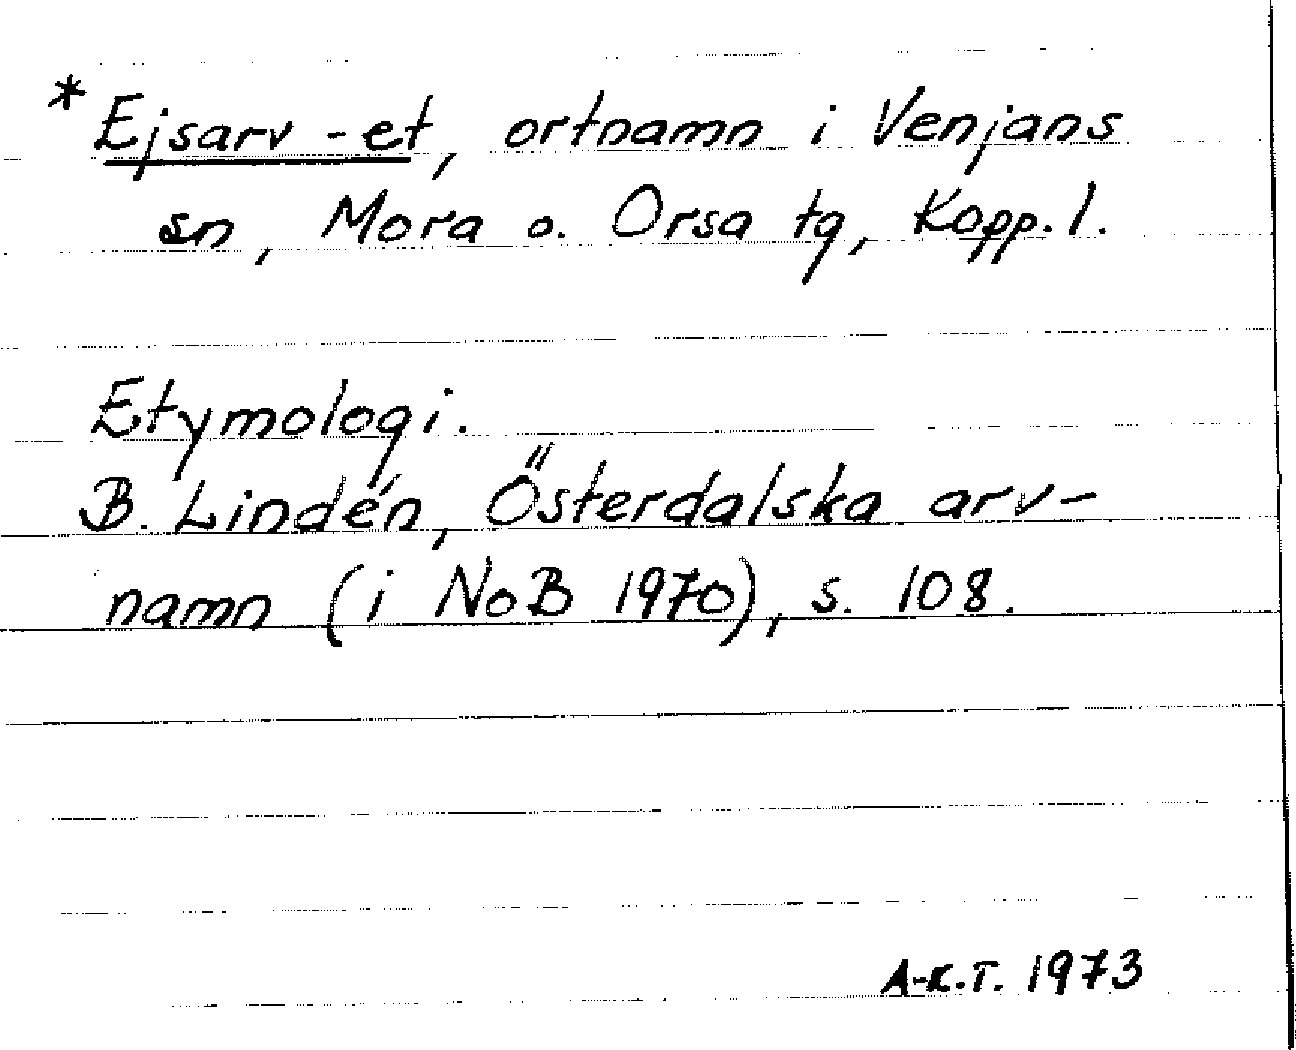 * Ejsarv -et, ortnamn i Venjans
sn, Mora o. Orsa tg, Kopp. l.
Etymologi.
B. Lindén, Österdalska arv-
namn (i NoB 1970), s. 108.
A-K.T. 1973